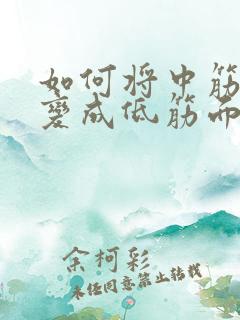 如何将中筋
变成低筋面
余柯彩
未经同意禁止转载